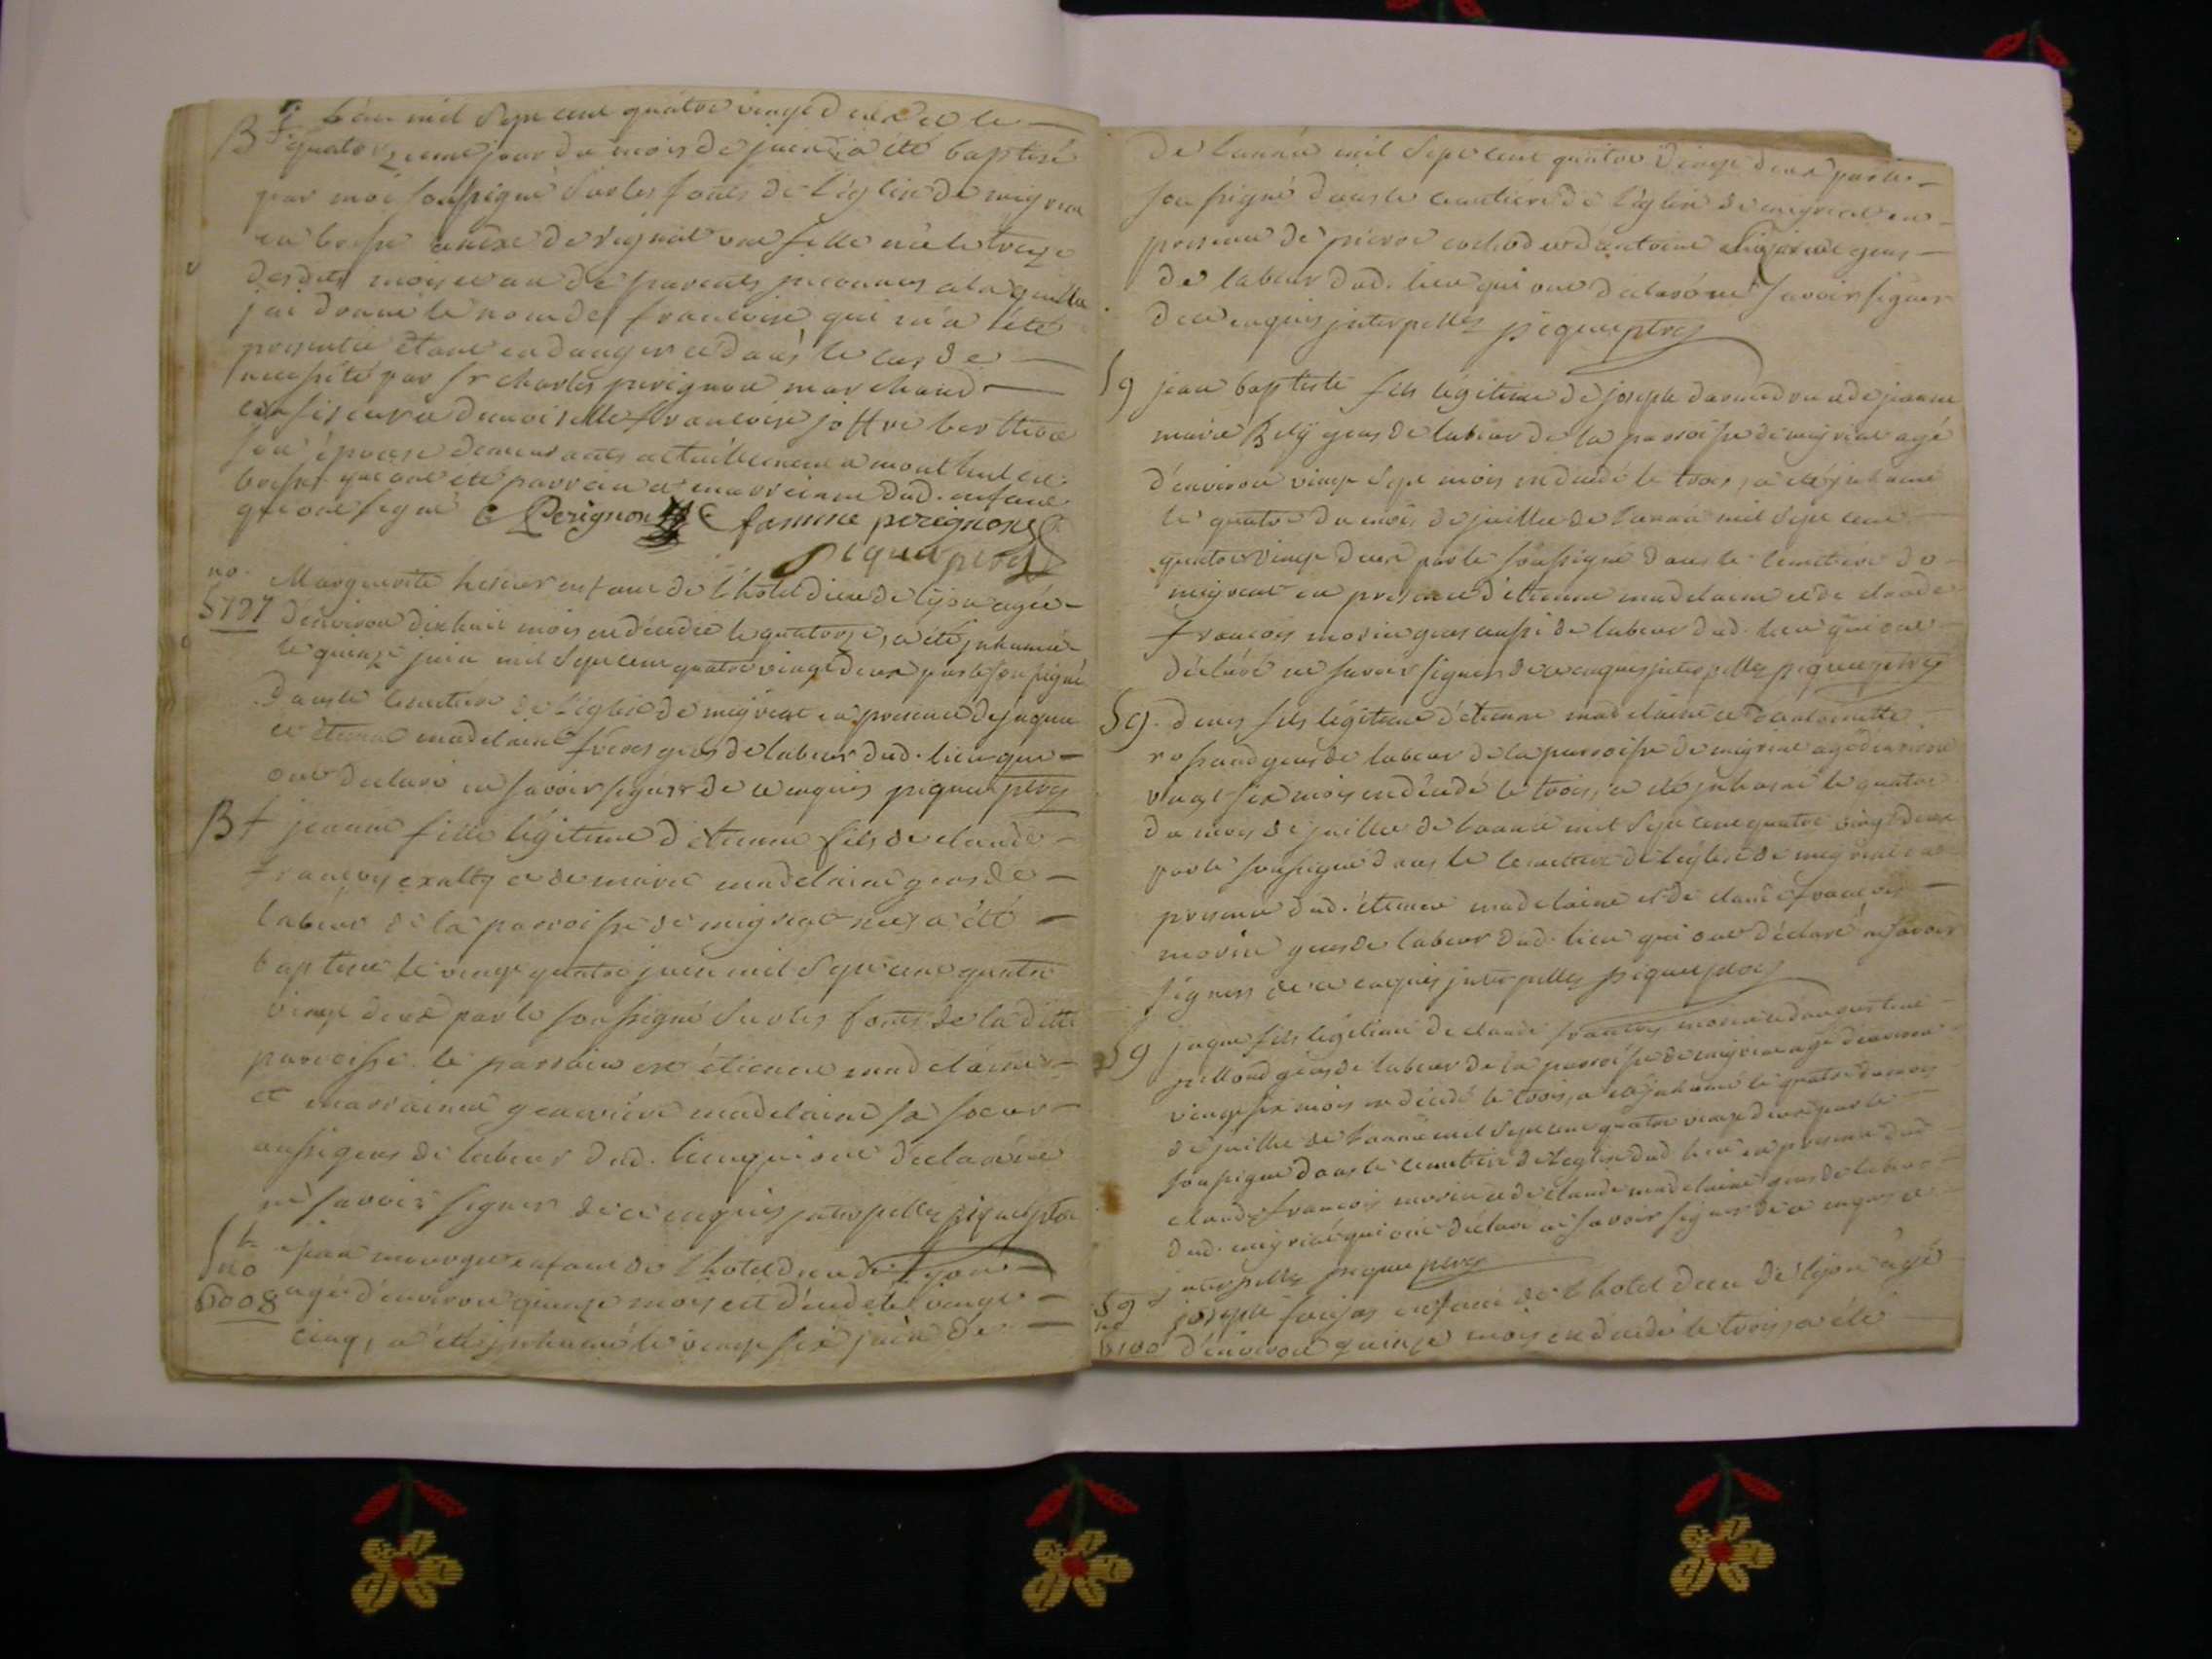 B f. L'an mil sept cent quatre vingt deux et le
quatorzieme jour du mois de juin, a été baptisé
par moi soussigné sur les fonts de l'église de meyriat
en bresse annexe de rignat une fille née le treize
desdits mois et an de parents inconnus a laquelle
j'ai donné le nom de francoise qui m'a été
presentée étant en danger et dans le cas de
necessité par sr charles perignon marchand
et demoiselle francoise joffre berthera
son épouse demeurants actuellement a
bresse qui ont été parrein et marreinne dud. enfant
qui ont signé C Perignon femme perignon
piquet ptre
no. Marguerite enfant de l'hotel dieu de lyon agée
5787 d'environ dix huit mois est décédée le quatorze, a été inhumée
le quinze juin mil sept cent quatre vingt deux par le soussigné
dans le cimetière de l'église de meyriat en presence de jaque
et étienne madelaine frères gens de labeur dud. lieu qui
ont declaré ne savoir signer de ce enquis piquet ptre
B f jeanne fille légitime d'étienne fils de claude
francois et de marie madelaine gens de
labeur de la parroisse de meyriat née a été
baptisée le vingt quatre juin mil sept cent quatre
vingt deux par le soussigné sur les fonts de laditte
parroisse. le parrain est étienne madelaine
et marrainne genevieve madelaine sa soeur
aussi gens de labeur dud. lieu qui ont déclaré
ne savoir signer de ce enquis interpellés piquet ptre
S no jean enfant de l'hotel dieu de lyon
6008 agé d'environ quinze mois est décedé le vingt
cinq, a été inhumé le vingt six juin de
de l'année mil sept cent quatre vingt deux par le
soussigné dans le cimetière de l'église de meyriat en
presence de pierre cochod et d'antoine gens
de labeur dud. lieu qui ont declaré ne savoir signer
de ce enquis interpellés piquet ptre
Sg jean baptiste fils légitime de joseph et de jeanne
marie Bely gens de labeur de la parroisse de meyriat agé
d'environ vingt sept mois est decédé le trois, a été inhumé
le quatre du mois de juillet de l'année mil sept cent
quatre vingt deux par le soussigné dans le cimetière de
meyriat en presence d'étienne madelaine et de claude
francois morin gens aussi de labeur dud. lieu qui ont
déclaré ne savoir signer de ce enquis interpellés piquet ptre
Sg. denis fils légitime d'étienne madelaine et d'antoinette
gens de labeur de la parroisse de meyriat agé d'environ
vingt six mois est décédé le trois, a été inhumé le quatre
du mois de juillet de l'année mil sept cent quatre vingt deux
par le soussigné dans le cimetière de l'église de meyriat en
presence dud. étienne madelaine et de claude francois
morin gens de labeur dud. lieu qui ont déclaré ne savoir
signer de ce enquis interpellés piquet ptre
Sg jaque fils légitime de claude francois morin et
gens de labeur de la parroisse de meyriat agé d'environ
vingt six mois est décedé le trois, a été inhumé le quatre du mois
de juillet de l'année mil sept cent quatre vingt deux par le
soussigné dans le cimetière de l'église dud. lieu en presence dud.
claude francois morin et de claude madelaine gens de labeur
dud. meyriat qui ont déclaré ne savoir signer de ce enquis et
interpellés piquet ptre
Sg no joseph enfant de l'hotel dieu de lyon agé
6100 d'environ quinze mois est decédé le trois, a été